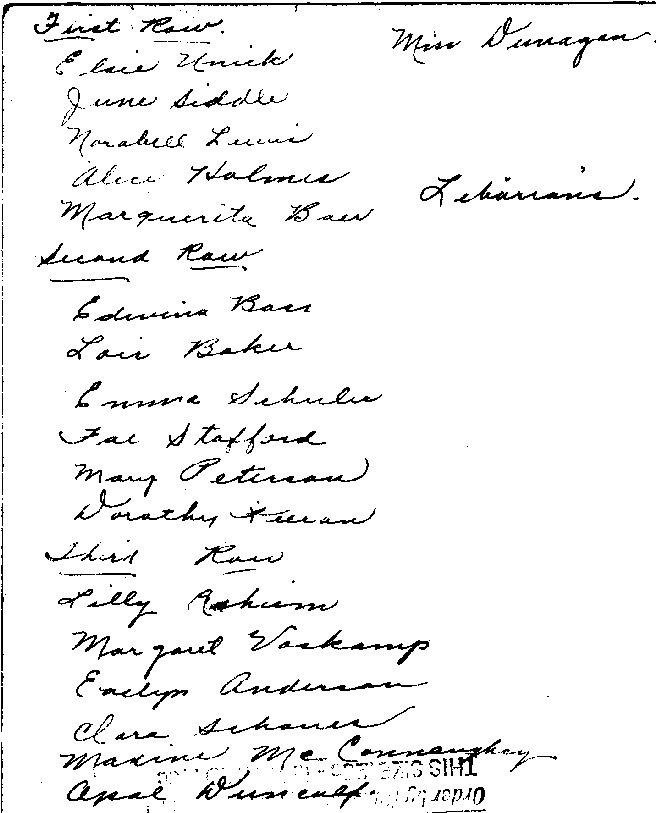 First Row.
Miss Dunagan.
Elsie Unick
June Siddle
Norabell Lewis
Alice Holmes
Marguerite Baer
Second Row.
Edwina Bass
Lois Baker
Emma Schuler
Fae Stafford
Mary Peterson
Dorothy
Third Row
Lilly
Margaret Voskamp
Evelyn Anderson
Clara Schauer
Maxine McConnaughey
Opal Duncalf
THIS SIZE
Order by